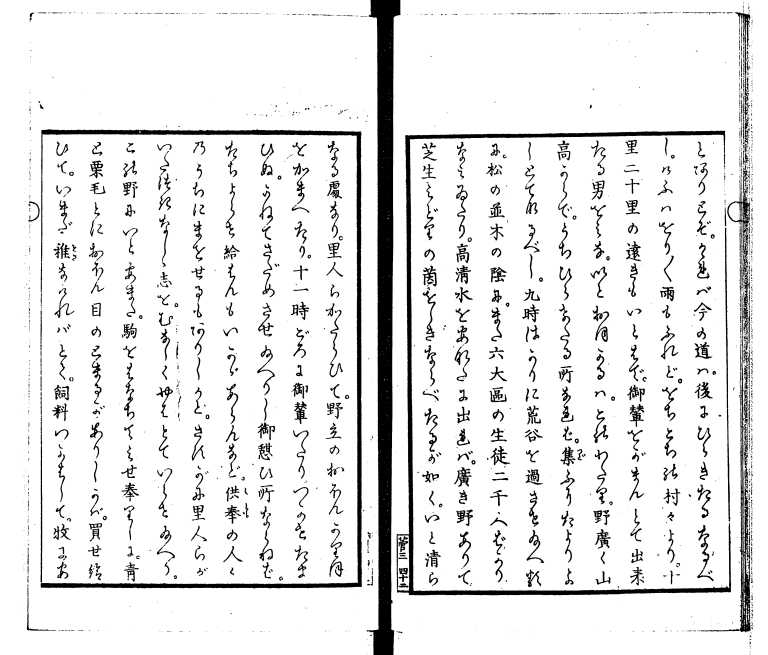 とありしぞ。されば今の道は。後にひらきたるなるべ
し。けふはをり〱雨もふれど。をちこちの村々より。十
里二十里の遠きもいとはで。御輦ををがまんとて出來
たる男をみな。いとおほかるは。この
野廣く山
高からで。うちひらきたる所なれば。集ふりたより
しとてなるべし。九時ばかりに荒谷を過させ給へ
に。松の並木の陰に。また六大區の生徒二千人ばかり
なみゐたり。高清水をあなたに出れば。廣き野ありて
芝生みどりの茵をしきならべたるが如く。いと清ら
なる處なり。里人らかたらひて。野立のおほん
をかまへたり。十一時ごろに御輦いたりつかせたま
ひぬ。かねてさだめさせ給へりし御憩ひ所ならねば。
たちよらせ給はんもいかゞあらんなど。供奉の人々
のうちにまをせるもありしかど。さすがに里人らが
いたつきなしゝ志を。むなしくやはとていらせ給へり。
この野にいとあまた。駒をはなちてみせ奉りしに。青
と栗毛とにおほん目のとまるがありしかば。買せ給
ひて。いまだ稚なければとく。飼料つかはして。牧にあ
菅三 四十二